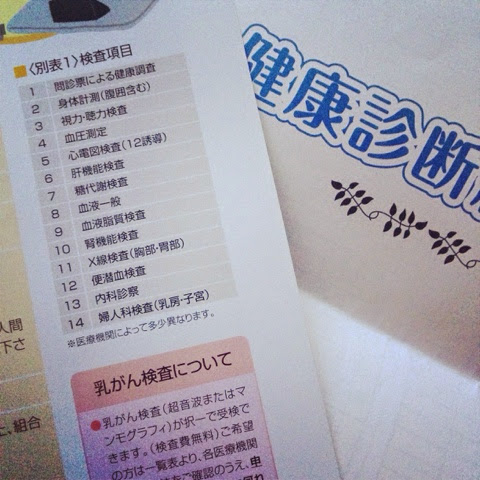 ■〈別表1〉検査項目
1 問診票による健康調査
2 身体計測(腹囲含む)
3 視力・聴力検査
4 血圧測定
5 心電図検査(12誘導)
6 肝機能検査
7 糖代謝検査
8 血液一般
9 血液脂質検査
10 腎機能検査
11 X線検査(胸部・胃部)
12 便潜血検査
13 内科診察
14 婦人科検査(乳房・子宮)
※医療機関によって多少異なります。
乳がん検査について
●乳がん検査(超音波またはマ
ンモグラフィ)が択一で受検で
きます。(検査費無料)ご希望
の方は一覧表より、各医療機関
をご確認のうえ、申
人間
下さ
、組合
健康診断